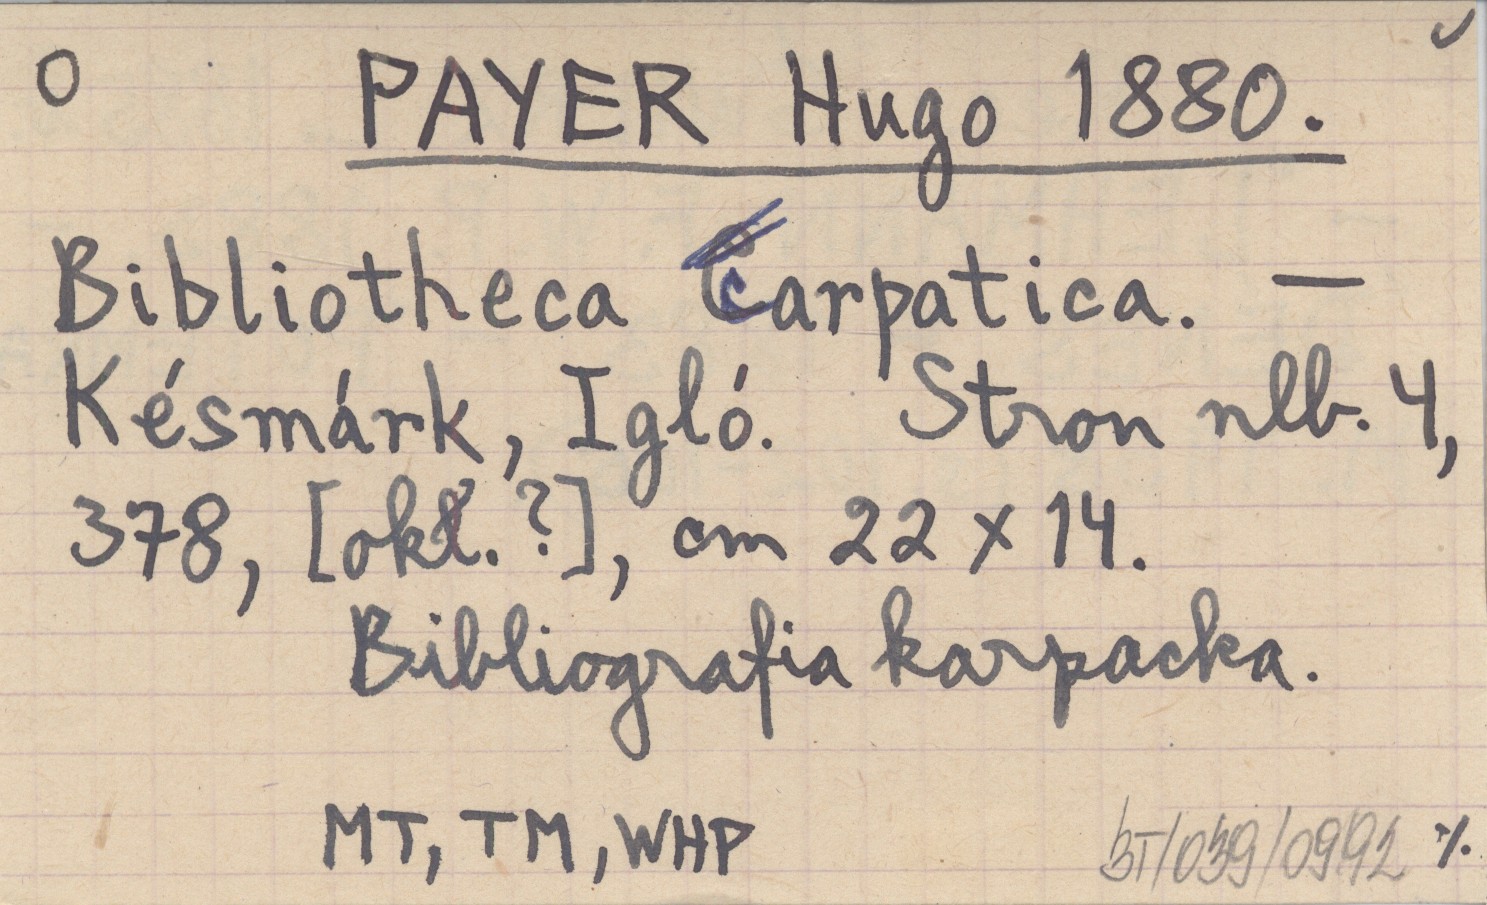 O PAYER Hugo 1880.
Bibliotheca carpatica. —
Késmárk, Igló. Stron nlb. 4,
378, [okł. ?], cm 22 x 14.
Bibliografia karpacka.
MT, TM, WHP
BT/039/0992 ./.